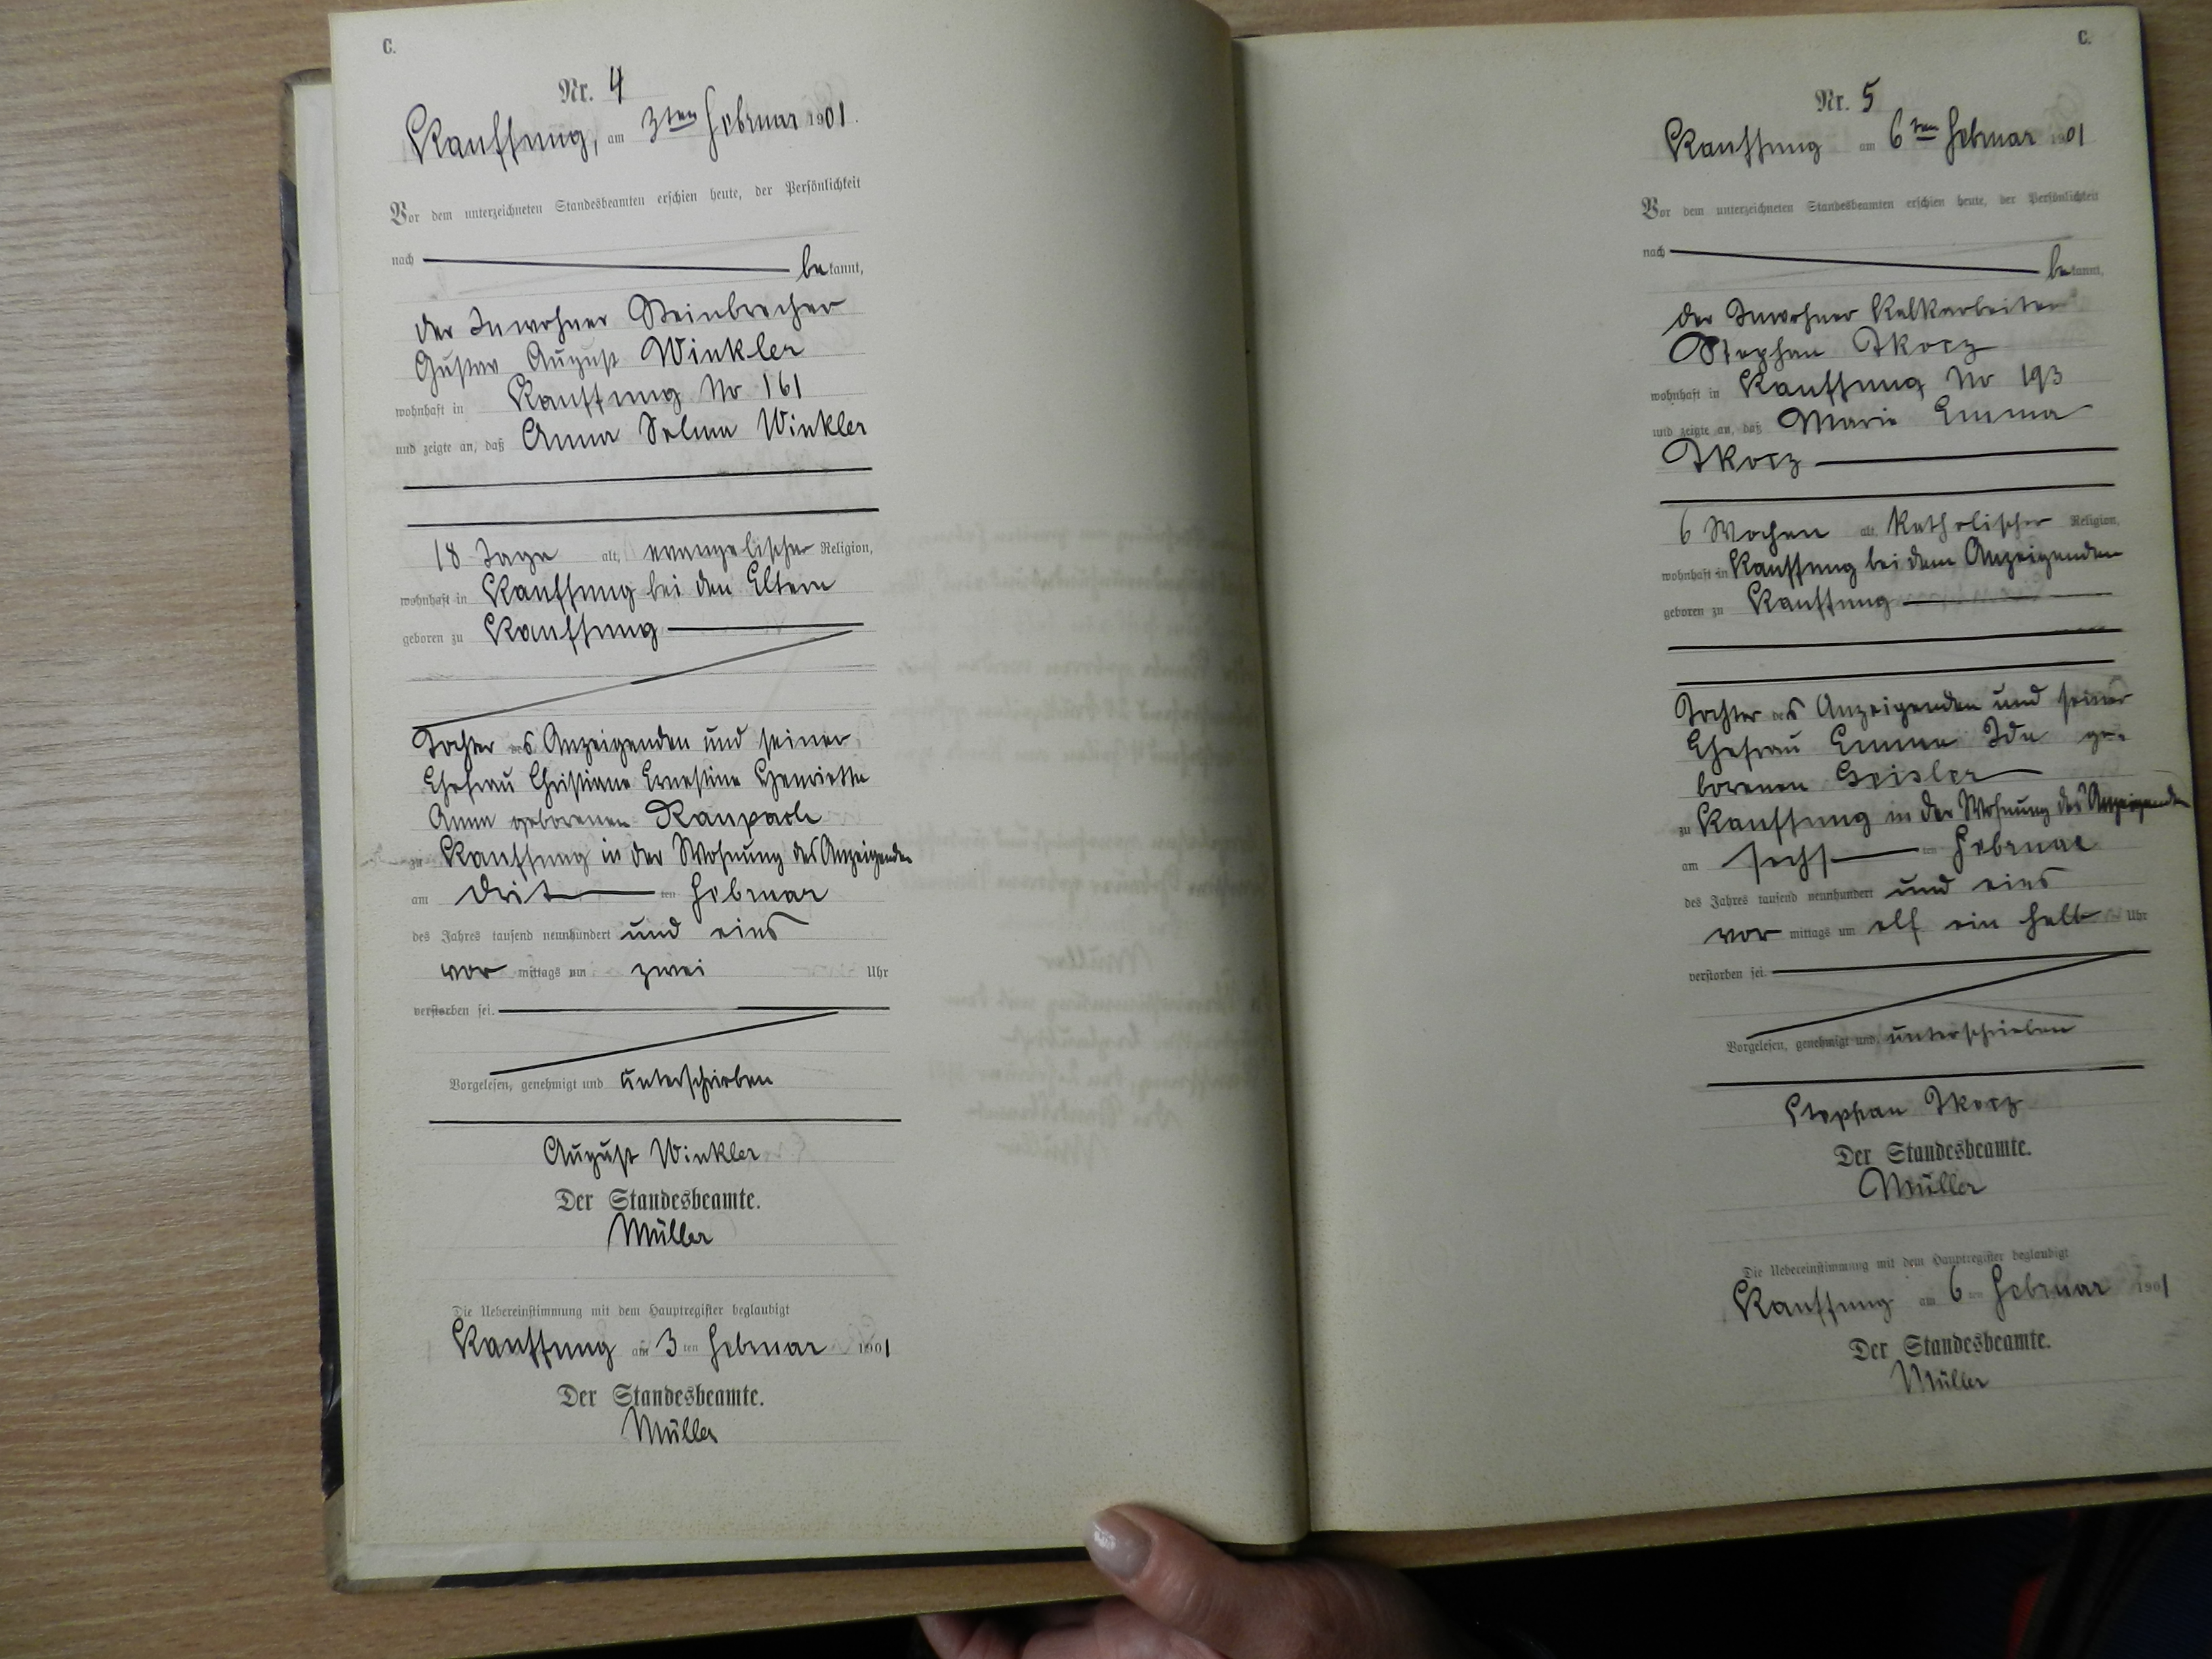 C.
Nr. 4
Kauffung, am 3ten Februar 1901.
Vor dem unterzeichneten Standesbeamten erschien heute, der Persönlichkeit
nach bekannt,
der Inwohner Steinbrecher
Gustav August Winkler
wohnhaft in Kauffung No 161
und zeigte an, daß Anna Selma Winkler
18 Tage alt, evangelischer Religion,
wohnhaft in Kauffung bei den Eltern
geboren zu Kauffung
Tochter des Anzeigenden und seiner
Ehefrau Christiane Ernestine Henriette
Anna geborenen Raupach
zu Kauffung in der Wohnung des Anzeigenden
am dritten Februar
des Jahres tausend neunhundert und eins
vormittags um zwei Uhr
verstorben sei.
Vorgelesen, genehmigt und unterschrieben
August Winkler
Der Standesbeamte.
Müller
Die Uebereinstimmung mit dem Hauptregister beglaubigt
Kauffung am 3ten Februar 1901
Der Standesbeamte.
Müller
C.
Nr. 5
Kauffung am 6ten Februar 1901
Vor dem unterzeichneten Standesbeamten erschien heute, der Persönlichkeit
nach bekannt,
der Inwohner Kalkarbeiter
Stephan Tkocz
wohnhaft in Kauffung No 193
und zeigte an, daß Marie Emma
Tkocz
6 Wochen alt, katholischer Religion,
wohnhaft in Kauffung bei dem Anzeigenden
geboren zu Kauffung
Tochter des Anzeigenden und seiner
Ehefrau Emma Ida ge-
borenen Geisler
zu Kauffung in der Wohnung des Anzeigenden
am sechsten Februar
des Jahres tausend neunhundert und eins
vormittags um elf ein halb Uhr
verstorben sei.
Vorgelesen, genehmigt und unterschrieben
Stephan Tkocz
Der Standesbeamte.
Müller
Die Uebereinstimmung mit dem Hauptregister beglaubigt
Kauffung am 6ten Februar 1901
Der Standesbeamte.
Müller